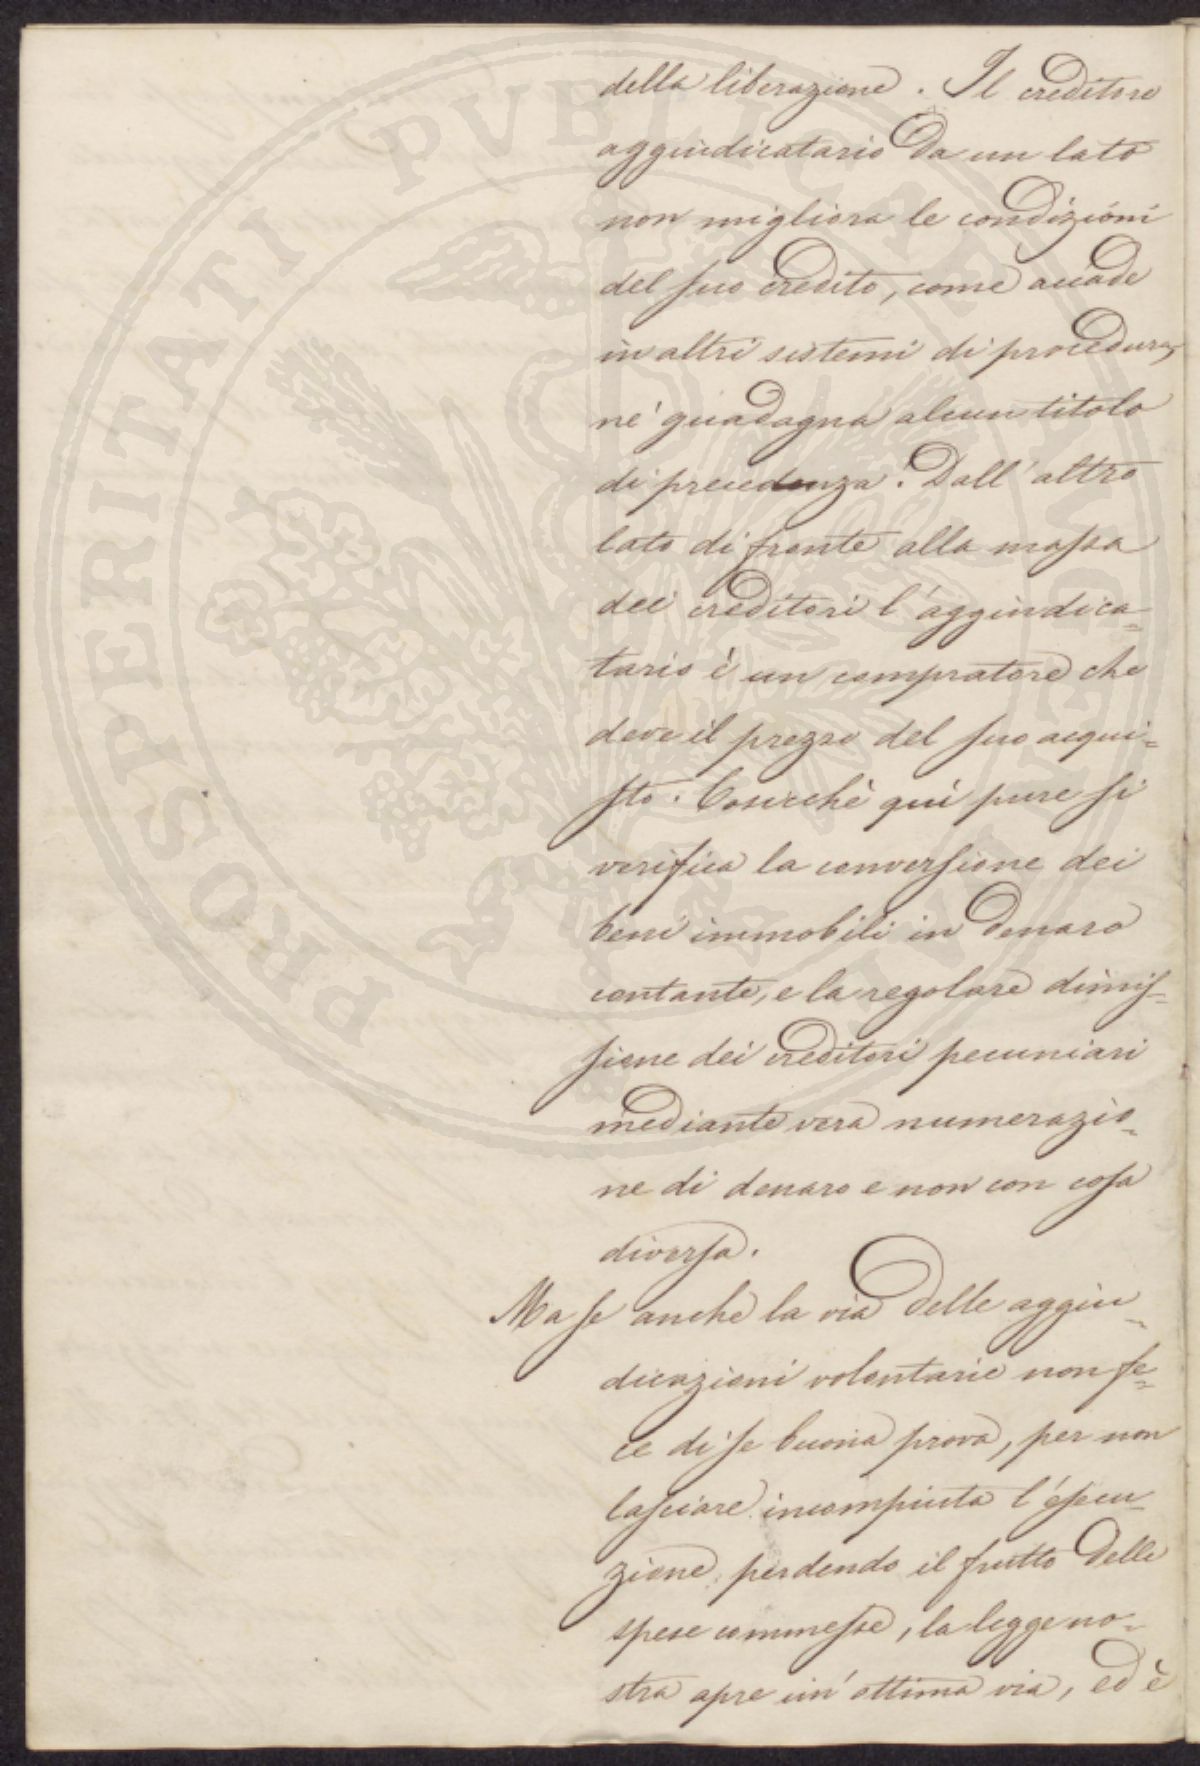 della liberazione. Il creditore
aggiudicatario da un lato
non migliora le condizioni
del suo credito, come accade
in altri sistemi di procedura,
nè guadagna alcun titolo
di precedenza. Dall'altro
lato di fronte alla massa
dei creditori l'aggiudica-
tario è un compratore che
deve il prezzo del suo acqui-
sto. Cosicchè quì pure si
verifica la conversione dei
beni immobili in denaro
contante, e la regolare dimis-
sione dei creditori pecuniari
mediante vera numerazio-
ne di denaro e non con cosa
diversa.
Ma se anche la via delle aggiu-
dicazioni volontarie non fe-
ce di se buona prova, per non
lasciare incompiuta l'esecu-
zione, perdendo il frutto delle
spese commesse, la legge no-
stra apre un'ottima via, ed è
PROSPERITATI PVBLICAE AVGENDAE